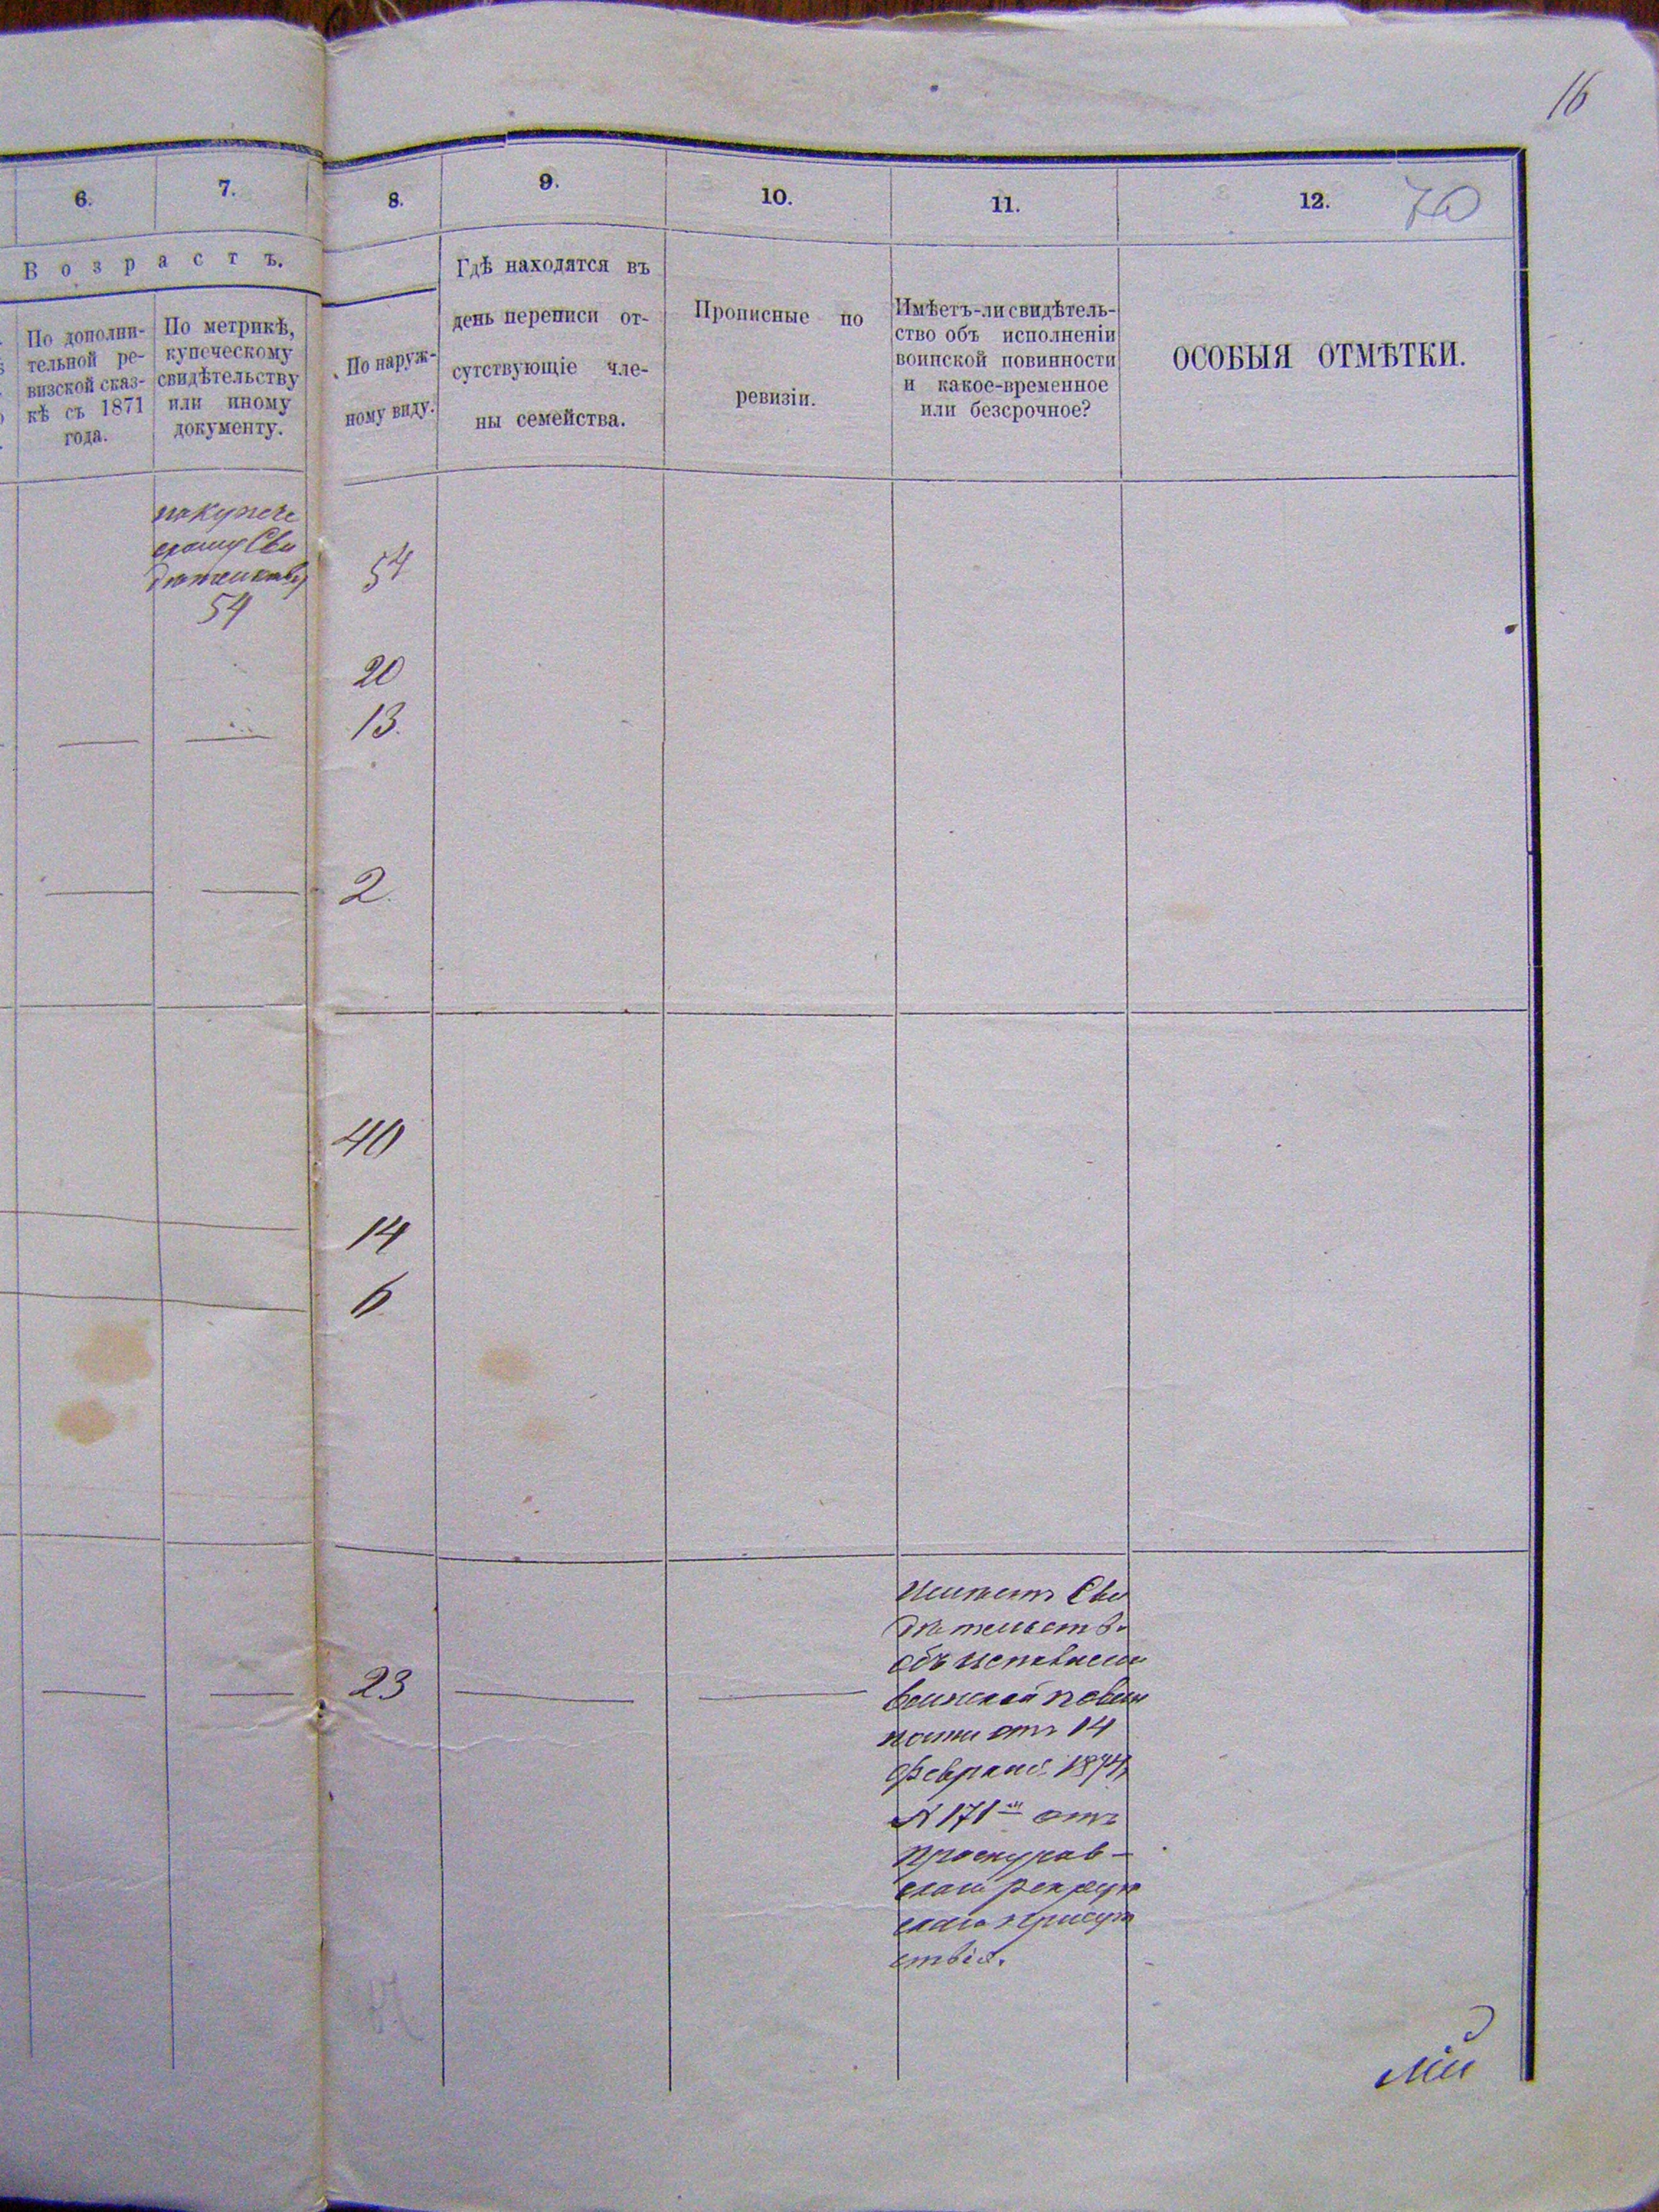 16
6.
7.
8.
9.
10.
11.
12.
70
Возрастъ.
По дополни-
тельной ре-
визской сказ-
кѣ съ 1871
года.
По метрикѣ,
купеческому
свидѣтельству
или иному
документу.
По наруж-
ному виду.
Гдѣ находятся въ
день переписи от-
сутствующіе чле-
ны семейства.
Прописные по
ревизіи.
Имѣетъ-ли свидѣтель-
ство объ исполненіи
воинской повинности
и какое-временное
или безсрочное?
ОСОБЫЯ ОТМѢТКИ.
по купече
скому Сви
дѣтельству
54
54
20
13.
2.
40
14
6
23
Имѣетъ Сви
дѣтельство
объ
воинской повин
ности отъ 14
Февраля 1874
N 171 отъ
Проскуров-
скаго рекрут
скаго присут
ствія.